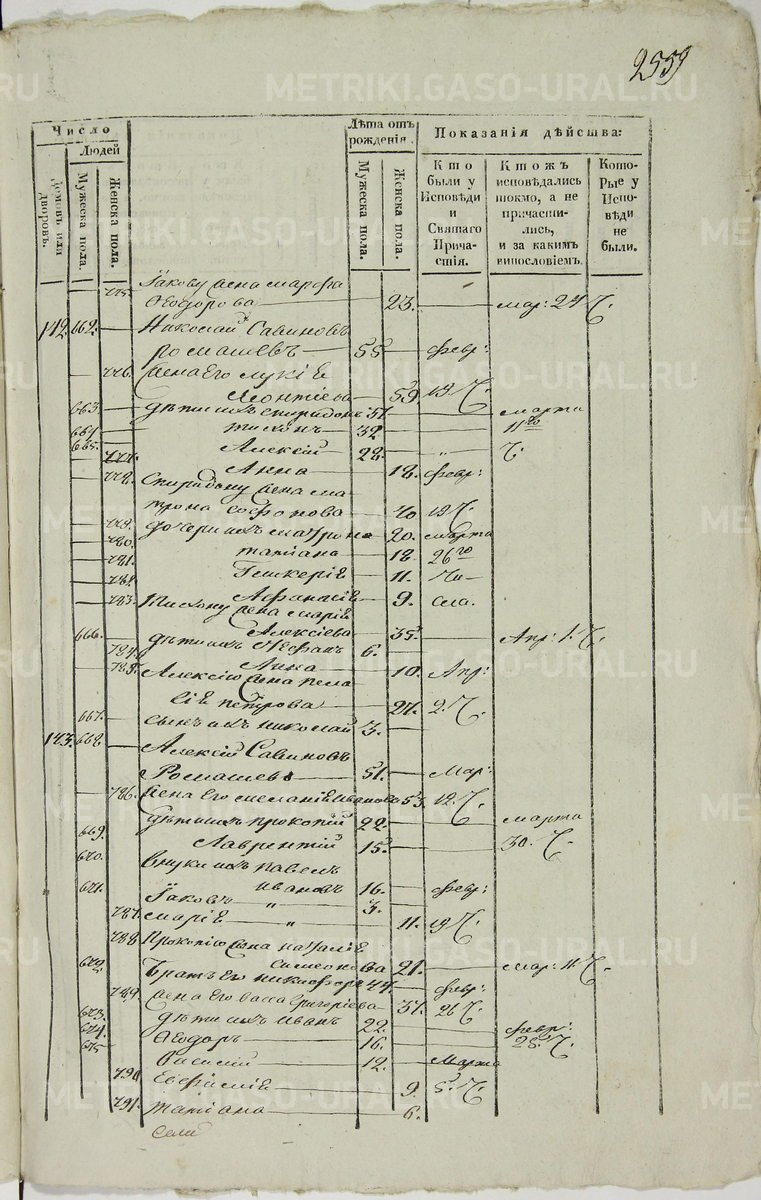 2559
Число
Людей
Домовъ или дворовъ.
Мужеска пола.
Женска пола.
Лѣта отъ рожденія.
Мужеска пола.
Женска пола.
Показанія дѣйства:
Кто были у Исповѣди и Святаго Причастія.
Ктожъ исповѣдались токмо, а не причастились, и за какимъ винословіемъ.
Которые у Исповѣди не были.
775. Іакову жена марѳа
Ѳеодорова 23. мар: 27 Ч.
142. 662. Николай Савиновъ
ромашевъ 55 февр:
776. жена его
Леонтіева 59 19 Ч.
663. дѣти ихъ спиридонъ 37. марта
664. тихонъ 32 11го
665. Алексій 28. " Ч.
777. Анна 18. февр:
778. Спиридону жена ма
трона софонова 40 19 Ч.
779. дочери ихъ матрона 20. марта
780. татіана 18. 26го
781. Гликеріѣ 11.
782. Афанасіѣ 9.
783. Тихону жена маріѣ
Алексіева 35. Апр: 1. Ч.
666. дѣти ихъ 6.
784. Анна 10. Апр:
785. Алексію жена пела
гіѣ петрова 27. 2. Ч.
667. сынъ ихъ николай 3.
143. 668 Алексій Савиновъ
Ромашевъ 51. Мар:
786. жена его меланіѣ иванова 53. 12. Ч.
дѣти ихъ прокопій 22. марта
669. Лаврентій 15. 30. Ч.
670. внуки ихъ павелъ
ивановъ 16. февр:
671. Іаковъ " 3.
787. маріѣ " 11. 19 Ч.
788 Прокопію жена наталіѣ
симеонова 21. мар: 11 Ч.
672. Братъ его никифоръ 44. февр:
789. жена его васса григоріева 37. 26 Ч.
673. дѣти ихъ иванъ 22. февр:
674. Ѳеодоръ 16. 28. Ч.
675 василій 12. марта
790 Евфиміѣ 9. 5. Ч.
791. татіана 6.
METRIKI.GASO-URAL.RU